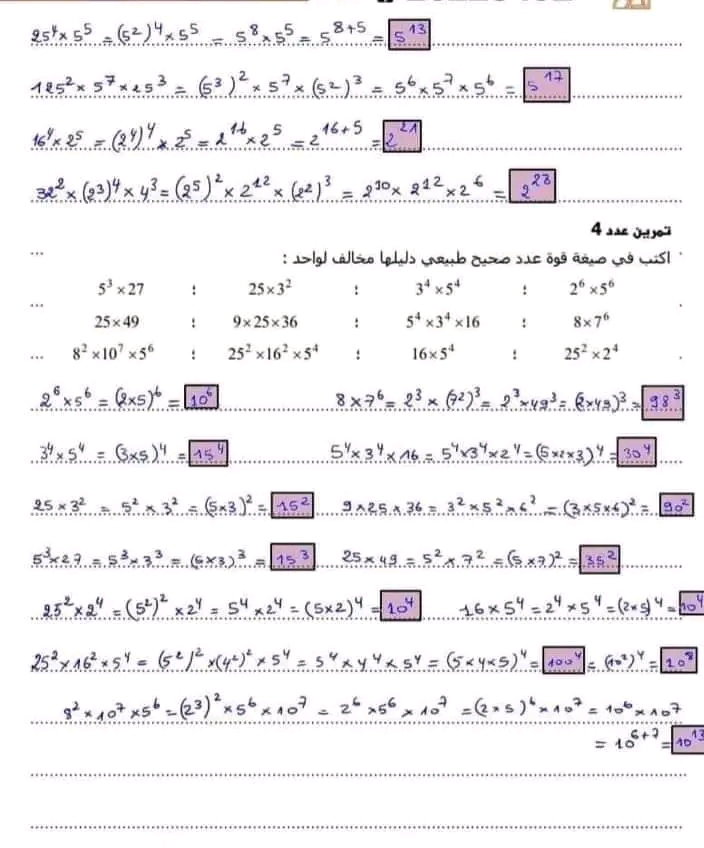 25⁴×5⁵ = (5²)⁴×5⁵ = 5⁸×5⁵ = 5⁸⁺⁵ = 5¹³
125²×5⁷×25³ = (5³)²×5⁷×(5²)³ = 5⁶×5⁷×5⁶ = 5¹⁷
16⁴×2⁵ = (2⁴)⁴×2⁵ = 2¹⁶×2⁵ = 2¹⁶⁺⁵ = 2²¹
32²×(2³)⁴×4³ = (2⁵)²×2¹²×(2²)³ = 2¹⁰×2¹²×2⁶ = 2²³
تمرين عدد 4
اكتب في صيغة قوة عدد صحيح طبيعي دليلها مخالف لواحد :
5³×27 : 25×3² : 3⁴×5⁴ : 2⁶×5⁶
25×49 : 9×25×36 : 5⁴×3⁴×16 : 8×7⁶
8²×10⁷×5⁶ : 25²×16²×5⁴ : 16×5⁴ : 25²×2⁴
2⁶×5⁶ = (2×5)⁶ = 10⁶ 8×7⁶ = 2³×(7²)³ = 2³×49³ = (2×49)³ = 98³
3⁴×5⁴ = (3×5)⁴ = 15⁴ 5⁴×3⁴×16 = 5⁴×3⁴×2⁴ = (5×2×3)⁴ = 30⁴
25×3² = 5²×3² = (5×3)² = 15² 9×25×36 = 3²×5²×6² = (3×5×6)² = 90²
5³×27 = 5³×3³ = (5×3)³ = 15³ 25×49 = 5²×7² = (5×7)² = 35²
25²×2⁴ = (5²)²×2⁴ = 5⁴×2⁴ = (5×2)⁴ = 10⁴ 16×5⁴ = 2⁴×5⁴ = (2×5)⁴ = 10⁴
25²×16²×5⁴ = (5²)²×(4²)²×5⁴ = 5⁴×4⁴×5⁴ = (5×4×5)⁴ = 100⁴ = (10²)⁴ = 10⁸
8²×10⁷×5⁶ = (2³)²×5⁶×10⁷ = 2⁶×5⁶×10⁷ = (2×5)⁶×10⁷ = 10⁶×10⁷
= 10⁶⁺⁷ = 10¹³